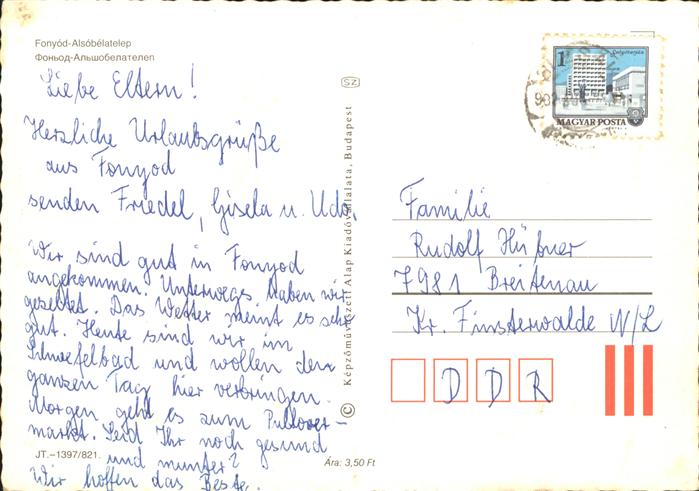 Fonyód-Alsóbélatelep
Фоньод-Альшобелателеп
Liebe Eltern!
Herzliche Urlaubsgrüße
aus Fonyod
senden Friedel, Gisela u. Udo.
Wir sind gut in Fonyod
angekommen. Unterwegs haben wir
gezeltet. Das Wetter meint es sehr
gut. Heute sind wir im
Schwefelbad und wollen den
ganzen Tag hier verbringen.
Morgen geht es zum Pullover-
markt. Seid Ihr noch gesund
und munter?
Wir hoffen das Beste.
JT.–1397/821.
Ára: 3,50 Ft
SZ
© Képzőművészeti Alap Kiadóvállalata, Budapest
1Ft
Salgótarján
MAGYAR POSTA
Familie
Rudolf Hüßner
7981 Breitenau
Kr. Finsterwalde N/L
DDR